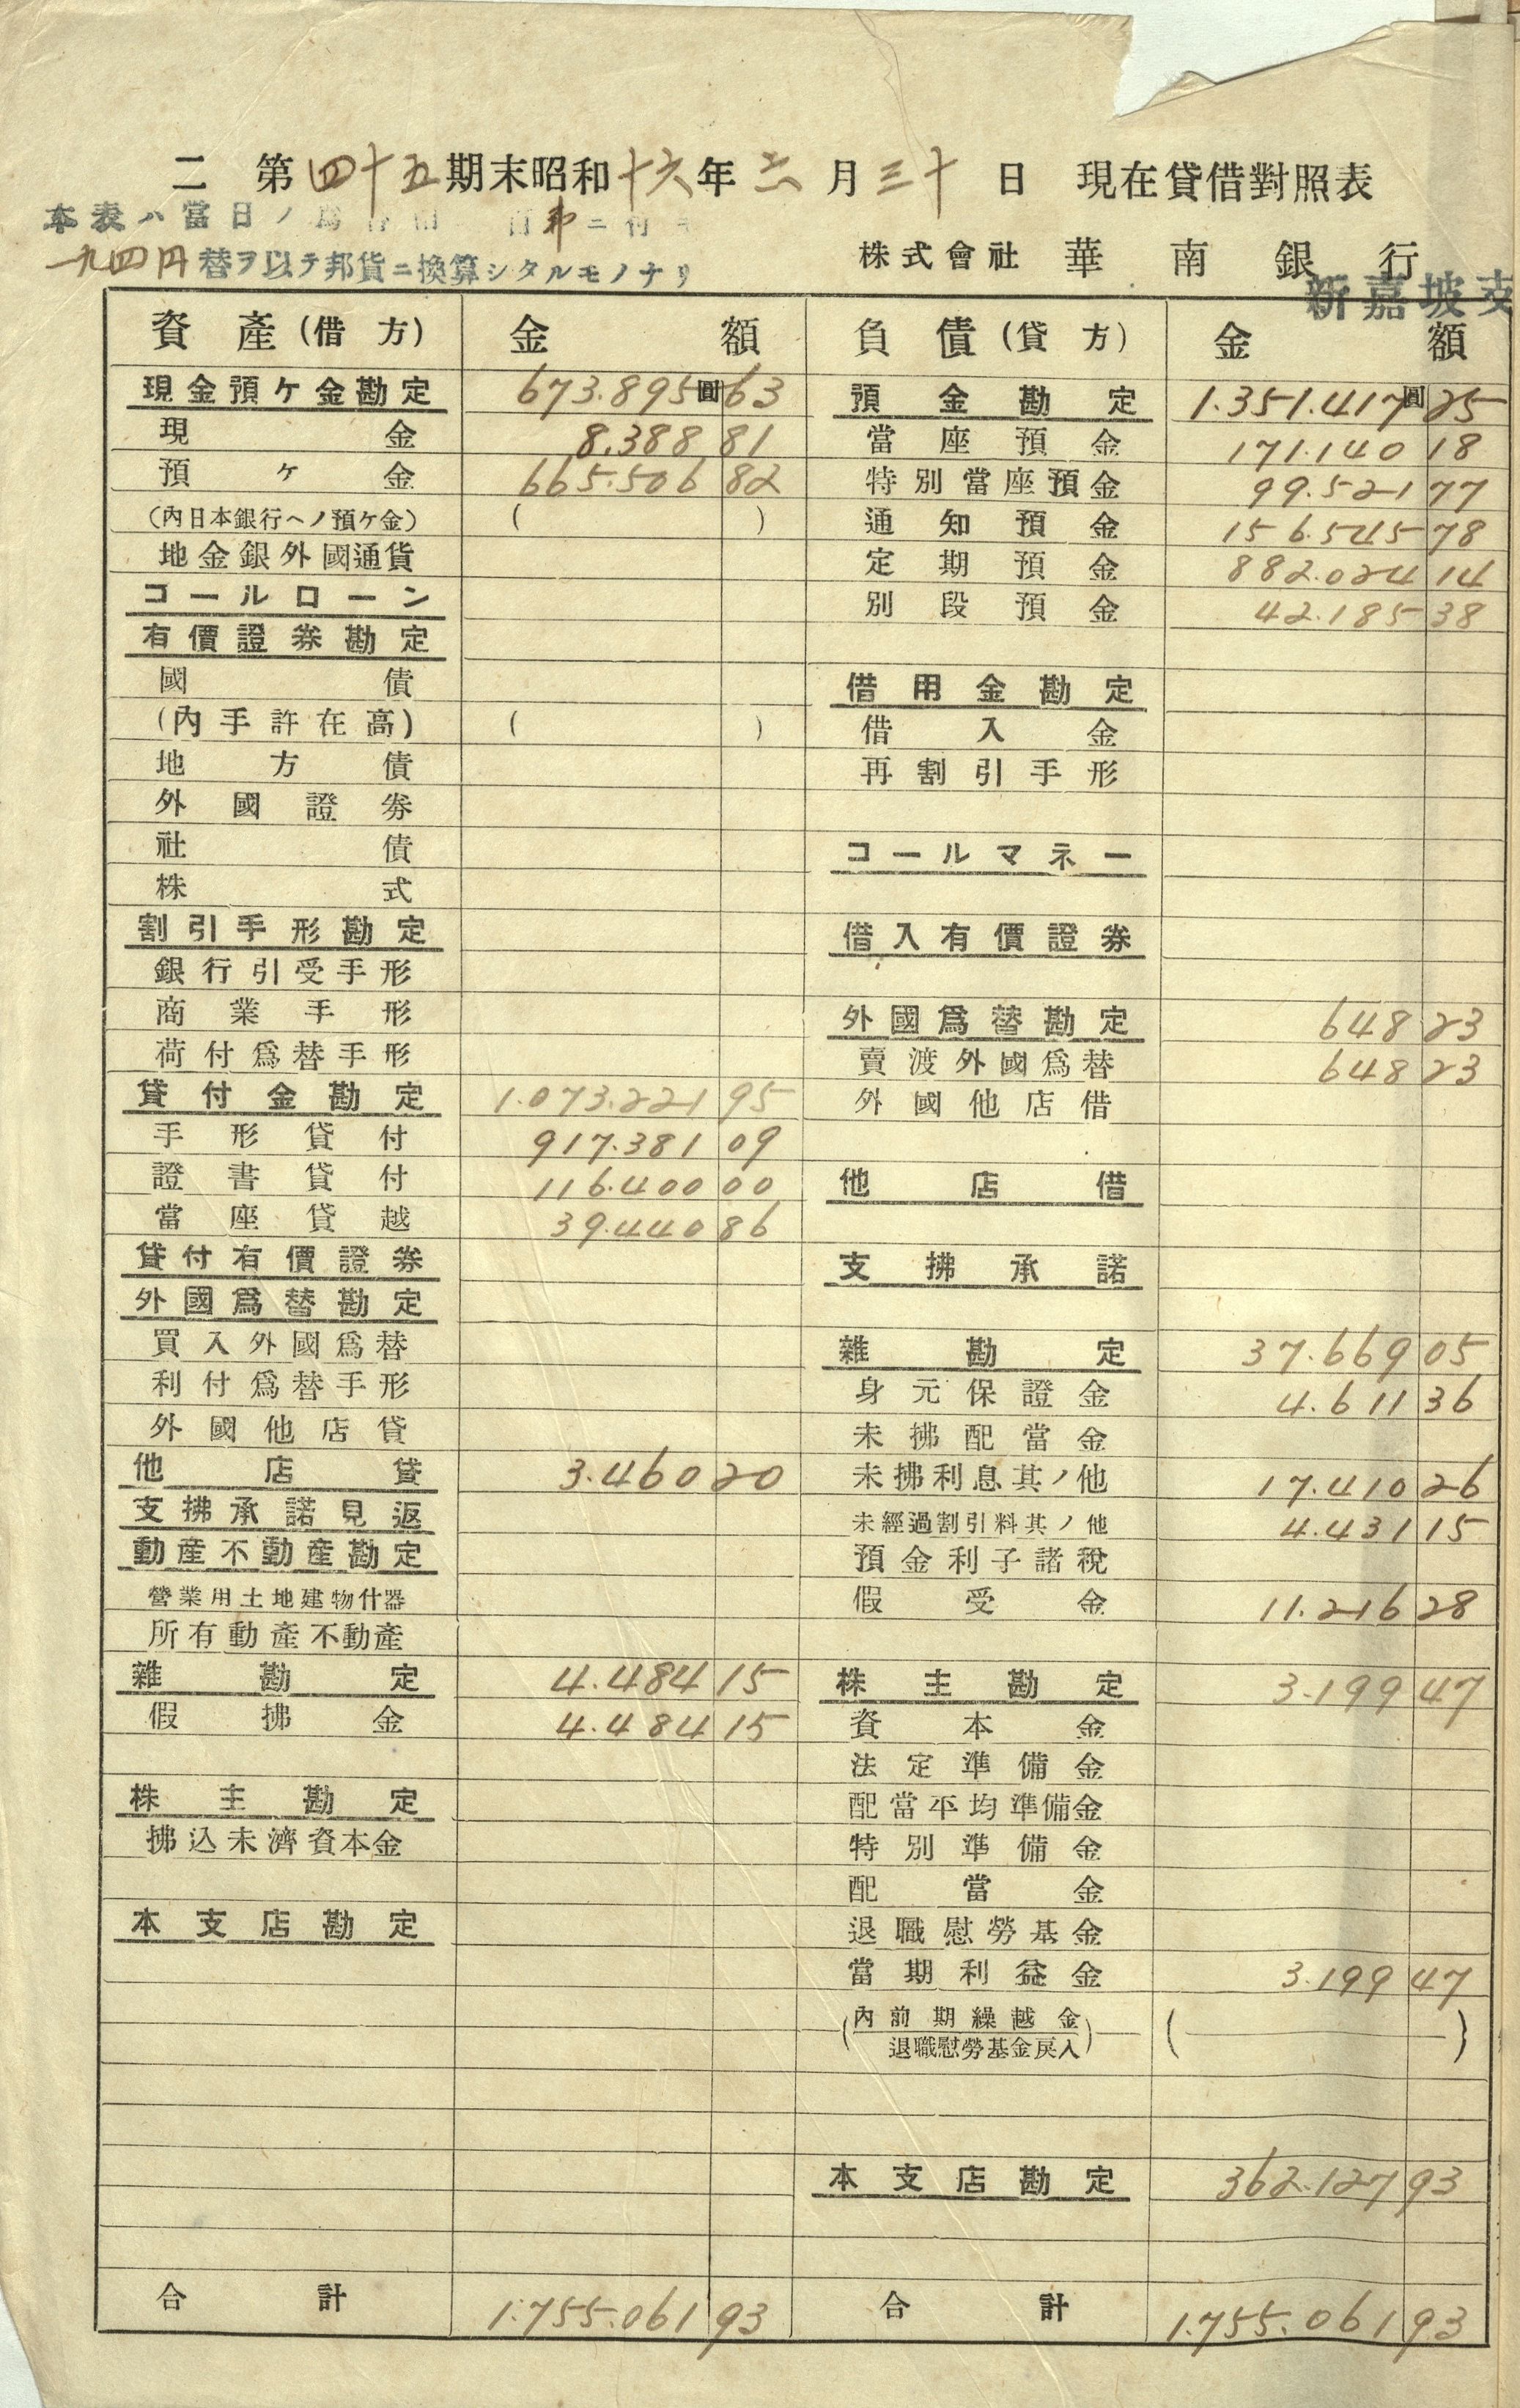 二 第四十五期末昭和十六年六月三十日 現在貸借對照表
本表ハ當日ノ爲替相 百弗ニ付キ
一九四円替ヲ以テ邦貨ニ換算シタルモノナリ
株式會社 華南銀行
新嘉坡支
資產(借方) 金額 負債(貸方) 金額
現金預ケ金勘定 673.895圓63
現金 8.388 81
預ケ金 665.506 82
(內日本銀行ヘノ預ケ金) ( )
地金銀外國通貨
コールローン
有價證券勘定
國債
(內手許在高) ( )
地方債
外國證券
社債
株式
割引手形勘定
銀行引受手形
商業手形
荷付爲替手形
貸付金勘定 1.073.221 95
手形貸付 917.381 09
證書貸付 116.400 00
當座貸越 39.440 86
貸付有價證券
外國爲替勘定
買入外國爲替
利付爲替手形
外國他店貸
他店貸 3.460 20
支拂承諾見返
動產不動產勘定
營業用土地建物什器
所有動產不動產
雜勘定 4.484 15
假拂金 4.484 15
株主勘定
拂込未濟資本金
本支店勘定
合計 1.755.061 93
預金勘定 1.351.417圓25
當座預金 171.140 18
特別當座預金 99.521 77
通知預金 156.545 78
定期預金 882.024 14
別段預金 42.185 38
借用金勘定
借入金
再割引手形
コールマネー
借入有價證券
外國爲替勘定 648 23
賣渡外國爲替 648 23
外國他店借
他店借
支拂承諾
雜勘定 37.669 05
身元保證金 4.611 36
未拂配當金
未拂利息其ノ他 17.410 26
未經過割引料其ノ他 4.431 15
預金利子諸稅
假受金 11.216 28
株主勘定 3.199 47
資本金
法定準備金
配當平均準備金
特別準備金
配當金
退職慰勞基金
當期利益金 3.199 47
(內前期繰越金 ( )
退職慰勞基金戾入)
本支店勘定 362.127 93
合計 1.755.061 93